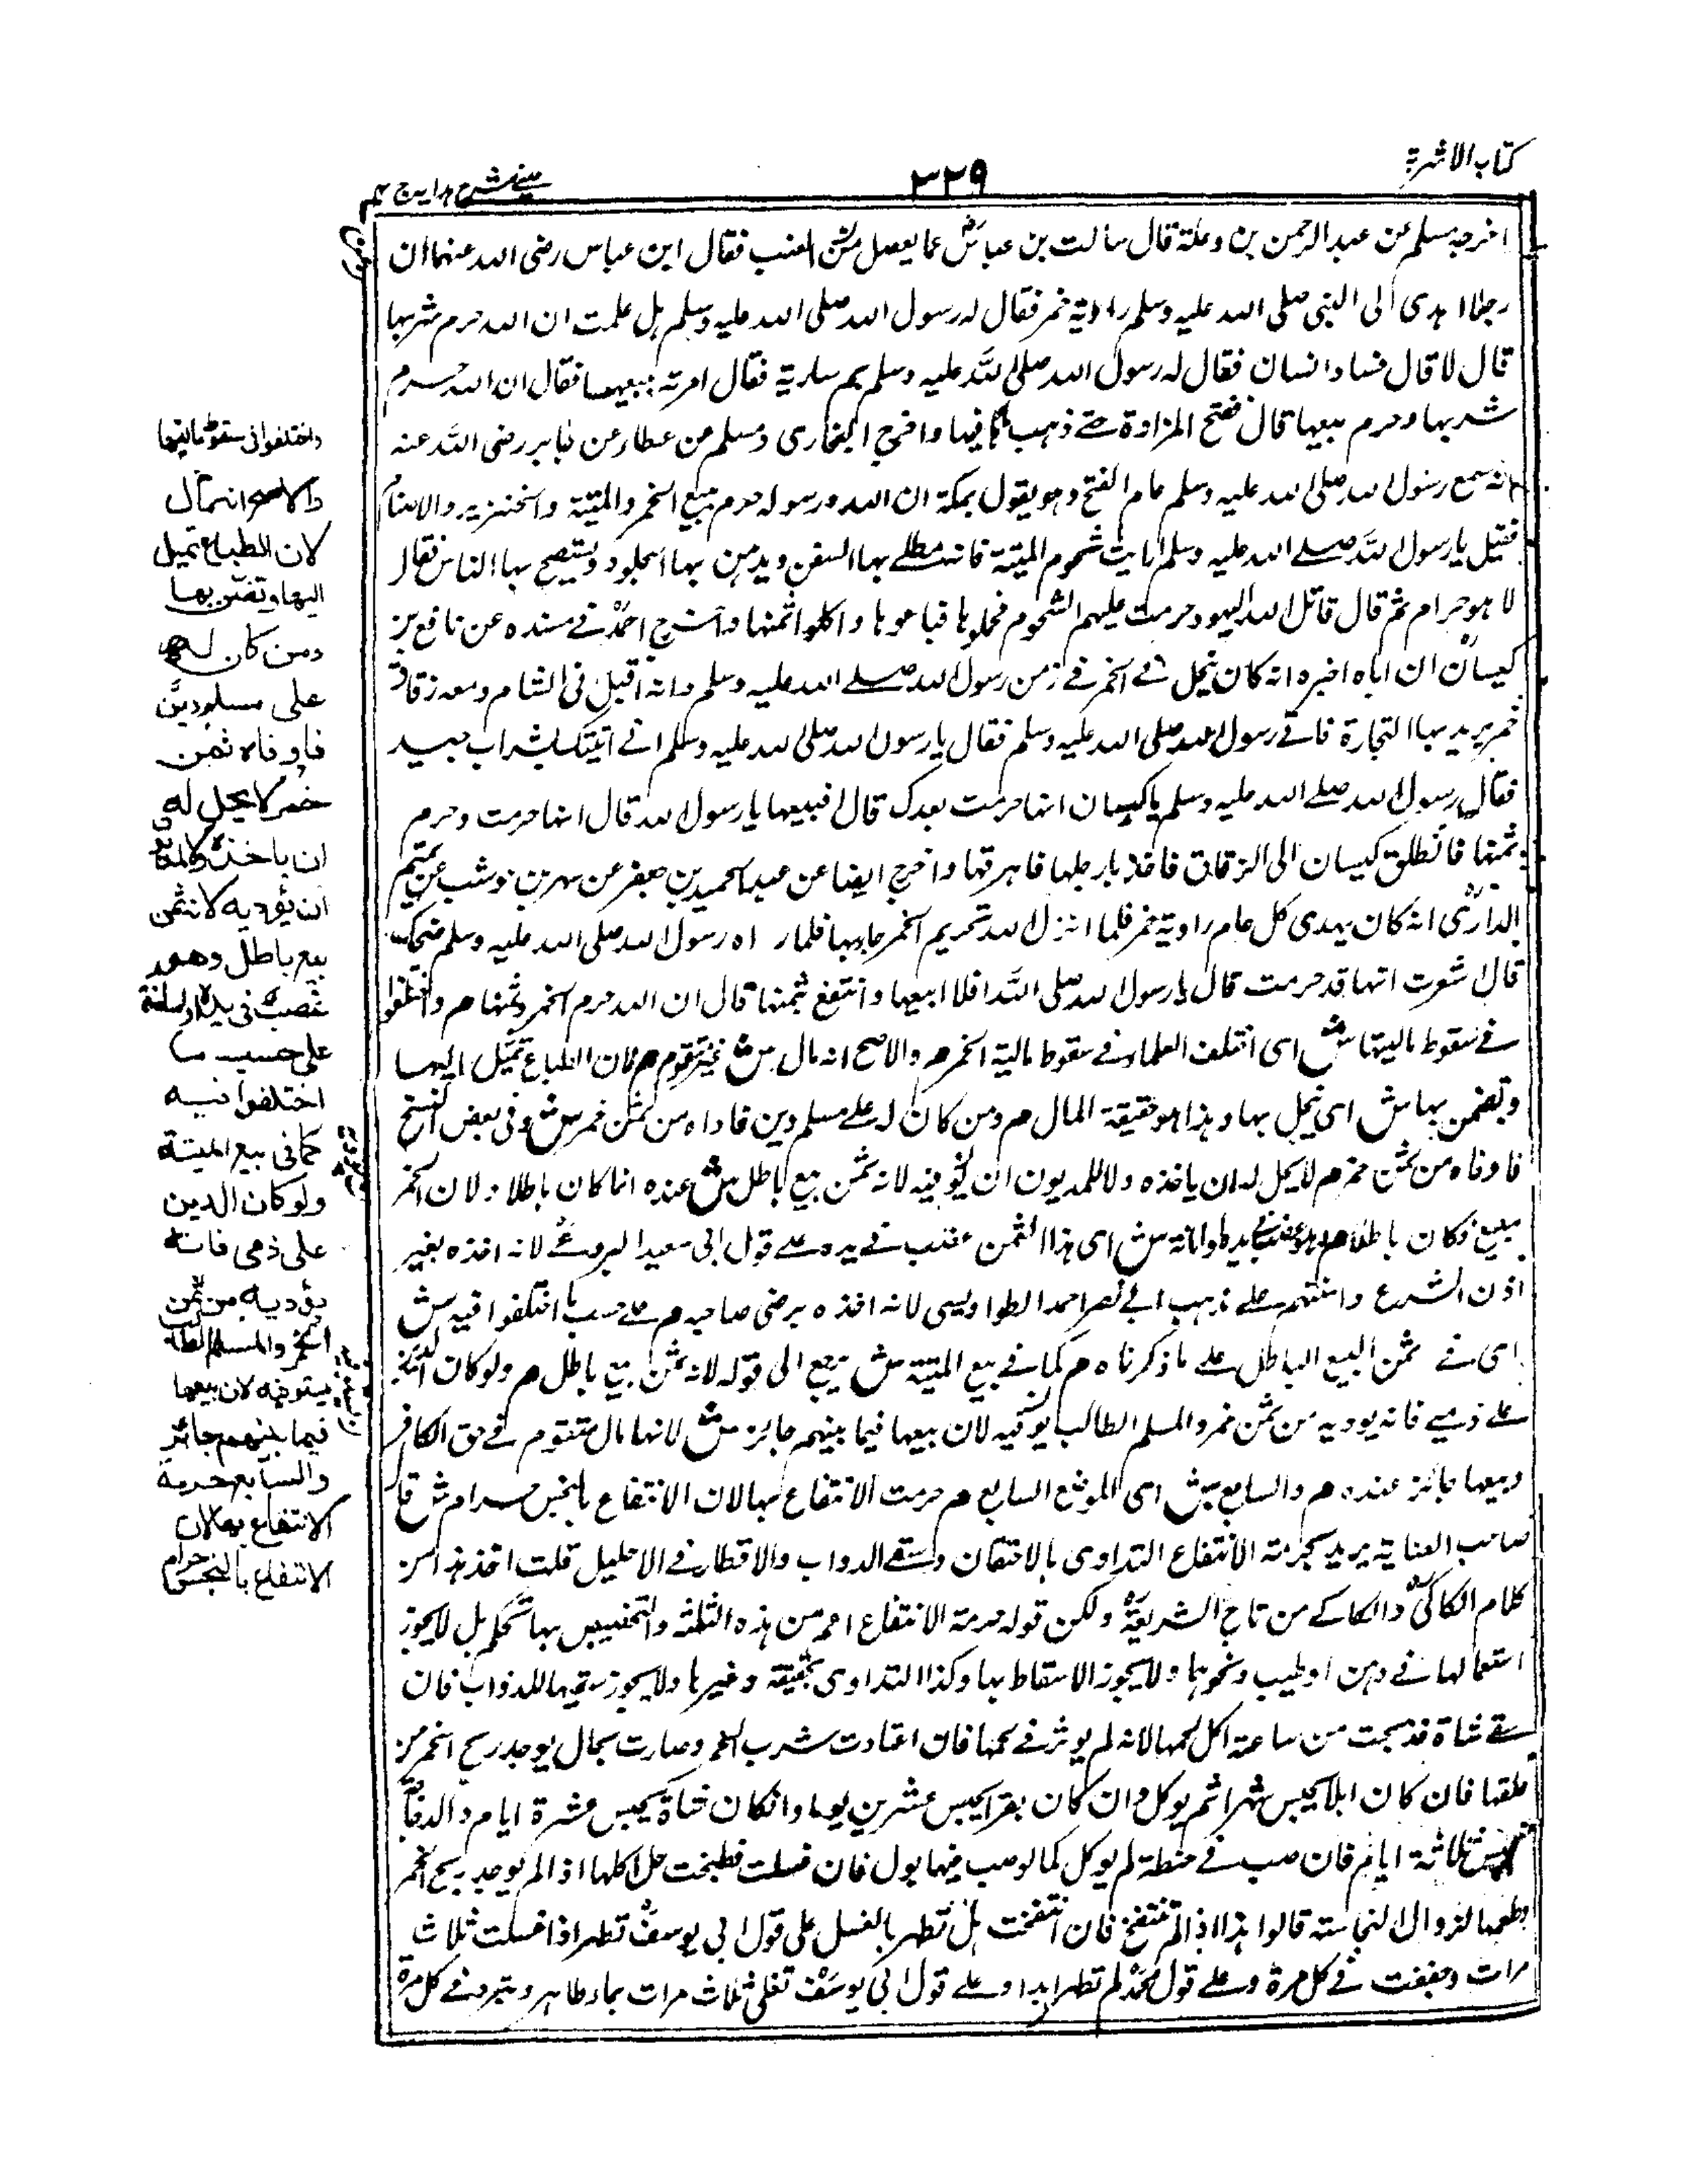 كتاب الاشربة
٣٢٩
عينى شرح هدايه ج ٤
اخرجه مسلم عن عبد الرحمن بن وعلة قال سالت بن عباسؓ عما يعصر من العنب فقال ابن عباس رضى الله عنهما ان
رجلا اهدى الى النبى صلى الله عليه وسلم راوية خمر فقال له رسول الله صلى الله عليه وسلم هل علمت ان الله حرم شربها
قال لا قال فسار انسانا فقال له رسول الله صلى الله عليه وسلم بم ساررته فقال امرته ببيعها فقال ان الله حرم
شربها وحرم بيعها قال ففتح المزادة حتى ذهب ما فيها واخرج البخارى ومسلم عن عطاء عن جابر رضى الله عنه
انه سمع رسول الله صلى الله عليه وسلم عام الفتح وهو يقول بمكة ان الله ورسوله حرم بيع الخمر والميتة والخنزير والاصنام
فقيل يا رسول الله صلى الله عليه وسلم ارايت شحوم الميتة فانه يطلى بها السفن ويدهن بها الجلود ويستصبح بها الناس فقال
لا هو حرام ثم قال قاتل الله اليهود حرمت عليهم الشحوم فجملوها فباعوها واكلوا ثمنها واخرج احمدؒ فى مسنده عن نافع بن
كيسان ان اباه اخبره انه كان يحمل فى الخمر فى زمن رسول الله صلى الله عليه وسلم وانه اقبل فى الشام ومعه زقاق
خمر يريد بها التجارة فاتى رسول الله صلى الله عليه وسلم فقال يا رسول الله صلى الله عليه وسلم انى اتيتك بشراب جيد
فقال رسول الله صلى الله عليه وسلم يا كيسان انها حرمت بعدك قال افبيعها يا رسول الله قال انها حرمت وحرم
ثمنها فانطلق كيسان الى الزقاق فاخذ بارجلها فاهرقها واخرج ايضا عن عبد الحميد بن جعفر عن شهر بن حوشب عن تميم
الدارىؓ انه كان يهدى كل عام راوية خمر فلما انزل الله تحريم الخمر جاء بها فلما راه رسول الله صلى الله عليه وسلم ضحك
قال شعرت انها قد حرمت قال يا رسول الله صلى الله افلا ابيعها وانتفع بثمنها قال ان الله حرم الخمر وثمنها م واختلفوا
فى سقوط ماليتها ش اى اختلف العلماء فى سقوط مالية الخمر م والاصح انه مال ش غير متقوم م لان الطباع تميل اليها
وتضن بها ش اى تبخل بها وهذا هو حقيقة المال م ومن كان له على مسلم دين فاداه من ثمن خمر ش وفى بعض النسخ
فاوفاه من ثمن خمر م لا يحل له ان ياخذه ولا للمديون ان يوفيه لانه ثمن بيع باطل ش عنده انما كان باطلا لان الخمر
بيع فكان باطلا م وهو غصب فى يده او امانة ش اى هذا الثمن غصب فى يده على قول ابى سعيد البردعى لانه اخذه بغير
اذن الشرع وامانة على مذهب ابى نصر احمد الطواويسى لانه اخذه برضى صاحبه م على حسب ما اختلفوا فيه ش
اى فى ثمن البيع الباطل على ما ذكرناه م كما فى بيع الميتة ش يرجع الى قوله لانه ثمن بيع باطل م ولو كان الدين
على ذمى فانه يوديه من ثمن خمر والمسلم الطالب يستوفيه لان بيعها فيما بينهم جائز ش لانها مال متقوم فى حق الكافر
وبيعها جائز عنده م والسابع ش اى الموضع السابع م حرمت الانتفاع بها لان الانتفاع بالنجس حرام ش قال
صاحب العناية يريد بحرمة الانتفاع التداوى بالاحتقان وسقى الدواب والاقطار فى الاحليل قلت اخذ هذا من
كلام الكاكىؒ والكاكى من تاج الشريعةؒ ولكن قوله حرمة الانتفاع اعم من هذه الثلثة والتخصيص بها تحكم بل لا يجوز
استعمالها فى دهن او طيب ونحوها ولا يجوز الاسقاط بها وكذا التداوى بحقنة وغيرها ولا يجوز سقيها للدواب فان
سقى شاة فذبحت من ساعته اكل لحمها لانه لم يوثر فى لحمها فان اعتادت شرب الخمر وصارت بحال يوجد ريح الخمر من
حلقها فان كان ابلا يحبس شهرا ثم يوكل وان كان بقرا يحبس عشرين يوما وانكان شاة يحبس عشرة ايام والدجاج
يحبس ثلاثة ايام فان صب فى حنطة لم يوكل كما لو صب فيها بول فان غسلت فطبخت حل اكلها اذا لم يوجد ريح الخمر
وطعمها لزوال النجاسة قالوا هذا اذا لم تنتفخ فان انتفخت هل تطهر بالغسل على قول ابى يوسفؒ تطهر اذا غسلت ثلاث
مرات وجففت فى كل مرة وعلى قول محمدؒ لم تطهر ابدا وعلى قول ابى يوسفؒ تغلى ثلاث مرات بماء طاهر وتبرد فى كل مرة
واختلفوا فى سقوط ماليتها
والاصح انه مال
لان الطباع تميل
اليها وتضن بها
ومن كان له
على مسلم دين
فاوفاه ثمن
خمر لا يحل له
ان ياخذه ولا للمديون
ان يؤديه لانه ثمن
بيع باطل وهو
غصب فى يده او امانة
على حسب ما
اختلفوا فيه
كما فى بيع الميتة
ولو كان الدين
على ذمى فانه
يؤديه من ثمن
الخمر والمسلم الطالب
يستوفيه لان بيعها
فيما بينهم جائز
والسابع حرمة
الانتفاع بها لان
الانتفاع بالنجس حرام